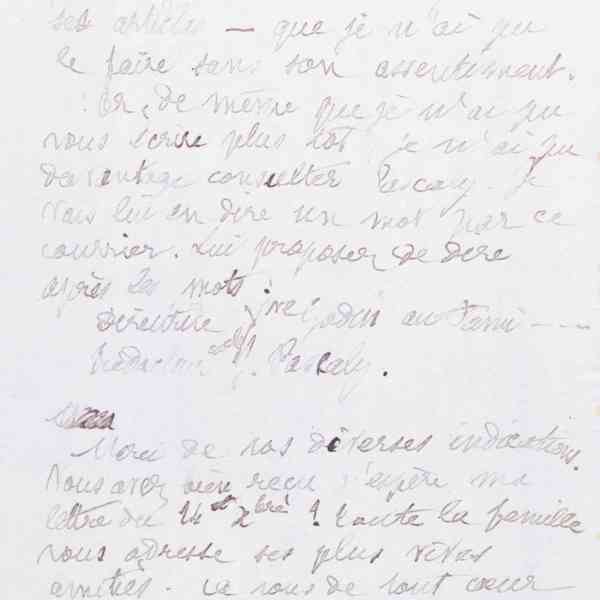 ses articles — que je n'ai pu
le faire sans son assentiment.
Or, de même que je n'ai pu
vous écrire plus tôt je n'ai pu
davantage consulter Pascaly. Je
vais lui en dire un mot par ce
courrier. Lui proposer de dire
après les mots :
Directrice Mme Godin au Fami---
J. Pascaly.
Merci de vos diverses indications.
Vous avez bien reçu j'espère ma
lettre du 14 et Xbre ? toute la famille
vous adresse ses plus vives
amitiés. de tout cœur